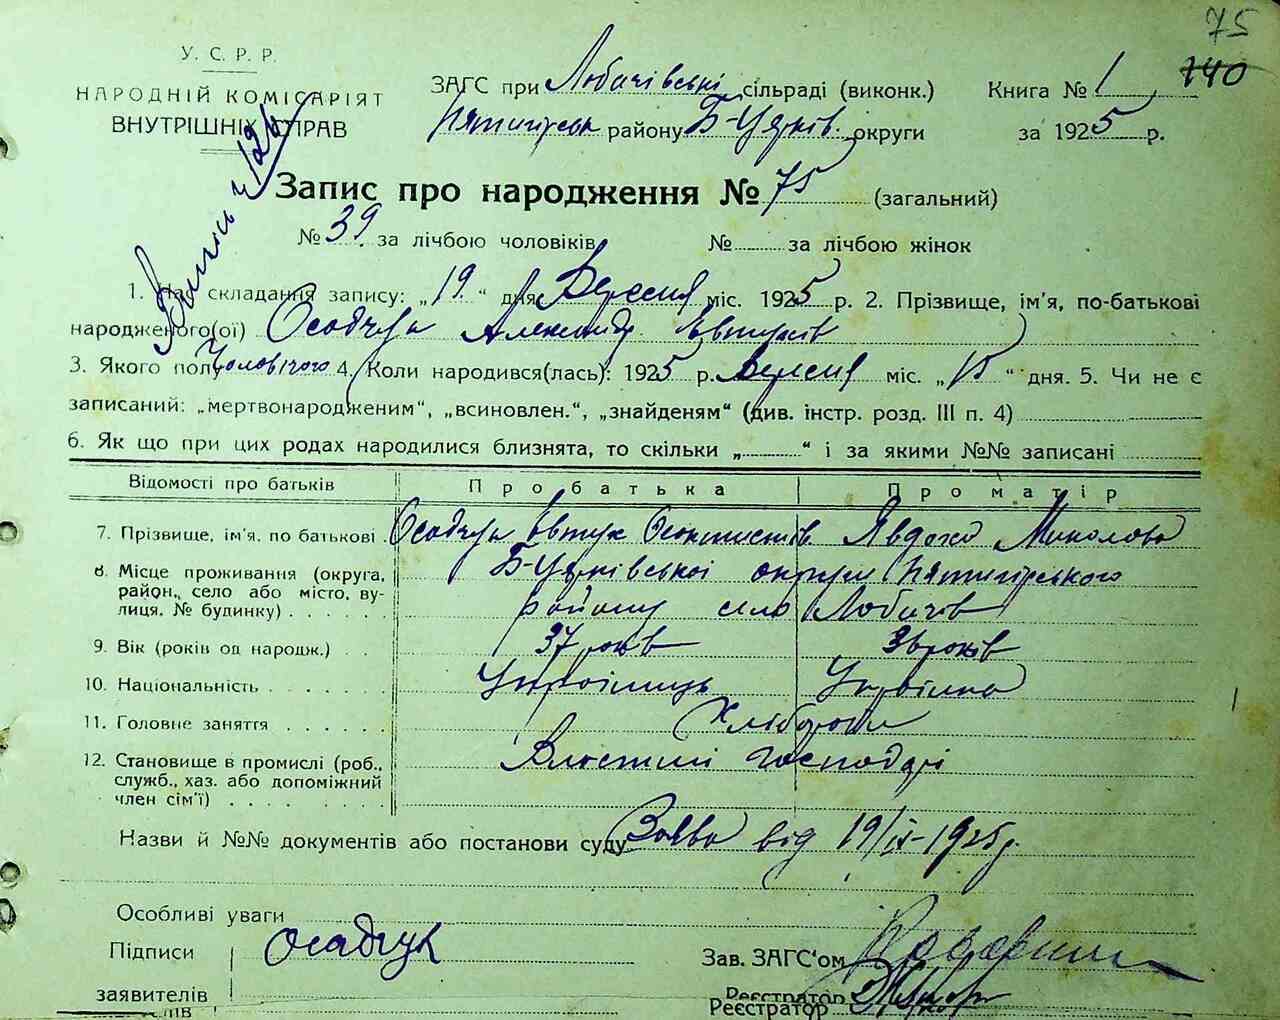 75
140
У. С. Р. Р.
НАРОДНІЙ КОМІСАРІЯТ
ВНУТРІШНІХ СПРАВ
ЗАГС при Лобачівські сільраді (виконк.) Книга № 1
Пятигірськ району Б-Церків. округи за 1925 р.
Запис про народження № 75 (загальний)
№ 39. за лічбою чоловіків № за лічбою жінок
1. Час складання запису: „19“ дня Вересня міс. 1925 р. 2. Прізвище, ім'я, по-батькові
народженого(ої) Осадчук Александр Євтухів
3. Якого полу Чоловічого 4. Коли народився(лась): 1925 р. Вересня міс. „15“ дня. 5. Чи не є
записаний: „мертвонародженим“, „всиновлен.“, „знайденям“ (див. інстр. розд. III п. 4)
6. Як що при цих родах народилися близнята, то скільки „ “ і за якими №№ записані
Відомості про батьків Про батька Про матір
7. Прізвище, ім'я. по батькові. Осадчук Євтух Явдоха Миколова
8. Місце проживання (округа, Б-Церківської округи Пятигірського
район., село або місто, ву- району село Лобачів
лиця. № будинку)
9. Вік (років од народж.) 37 років 36 років
10. Національність Українець Українка
11. Головне заняття Хлібороби
12. Становище в промислі (роб., Власнині господарі
служб., хаз. або допоміжний
член сім'ї)
Назви й №№ документів або постанови суду Заява від 19/ІХ-1925 р.
Особливі уваги
Підписи Осадчук Зав. ЗАГС'ом
заявителів Реєстратор
Реєстратор